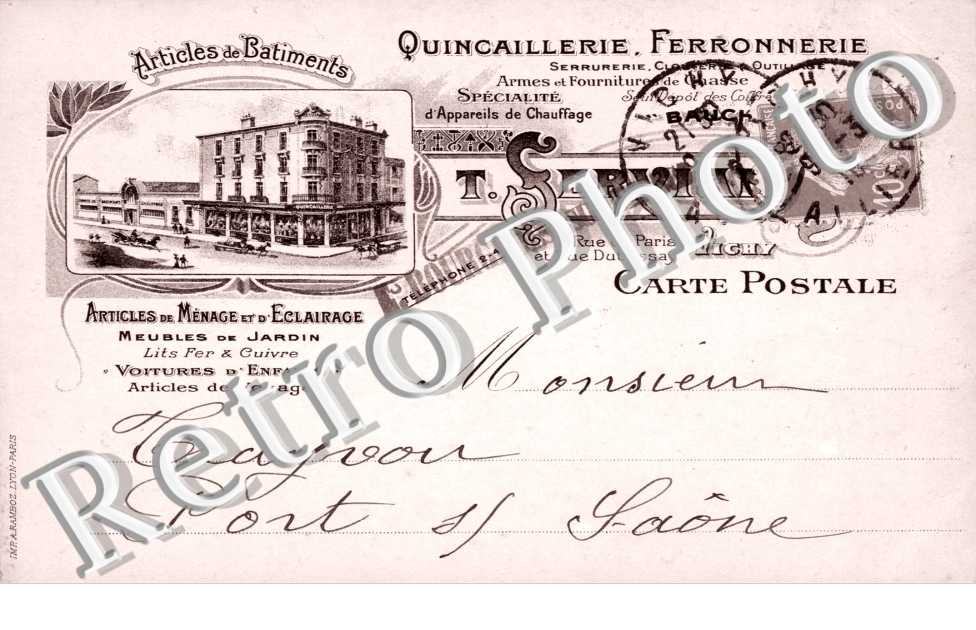 Articles de Batiments
QUINCAILLERIE, FERRONNERIE
SERRURERIE, CLOUTERIE & OUTILLAGE
Armes et Fournitures de Chasse
SPÉCIALITÉ
d'Appareils de Chauffage
Seul Dépôt des Coffres
BAUCHE
T.
Rue de Paris
et Rue
VICHY
TÉLÉPHONE 2-4
CARTE POSTALE
ARTICLES DE MÉNAGE ET D'ECLAIRAGE
MEUBLES DE JARDIN
Lits Fer & Cuivre
VOITURES D'ENFANTS
Articles de Voyage
Monsieur
Trayvou
Port s/ Saône
IMP. A. RAMBOZ. LYON-PARIS
VICHY
ALLIER
10c
Retro Photo